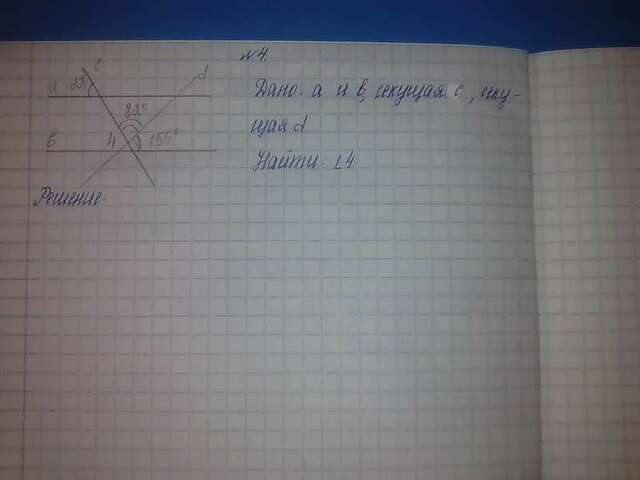 №4.
Дано: a и b, секущая c, секу-
щая d
Найти: ∠4
c
d
a 25
82°
b 4 155°
Решение.